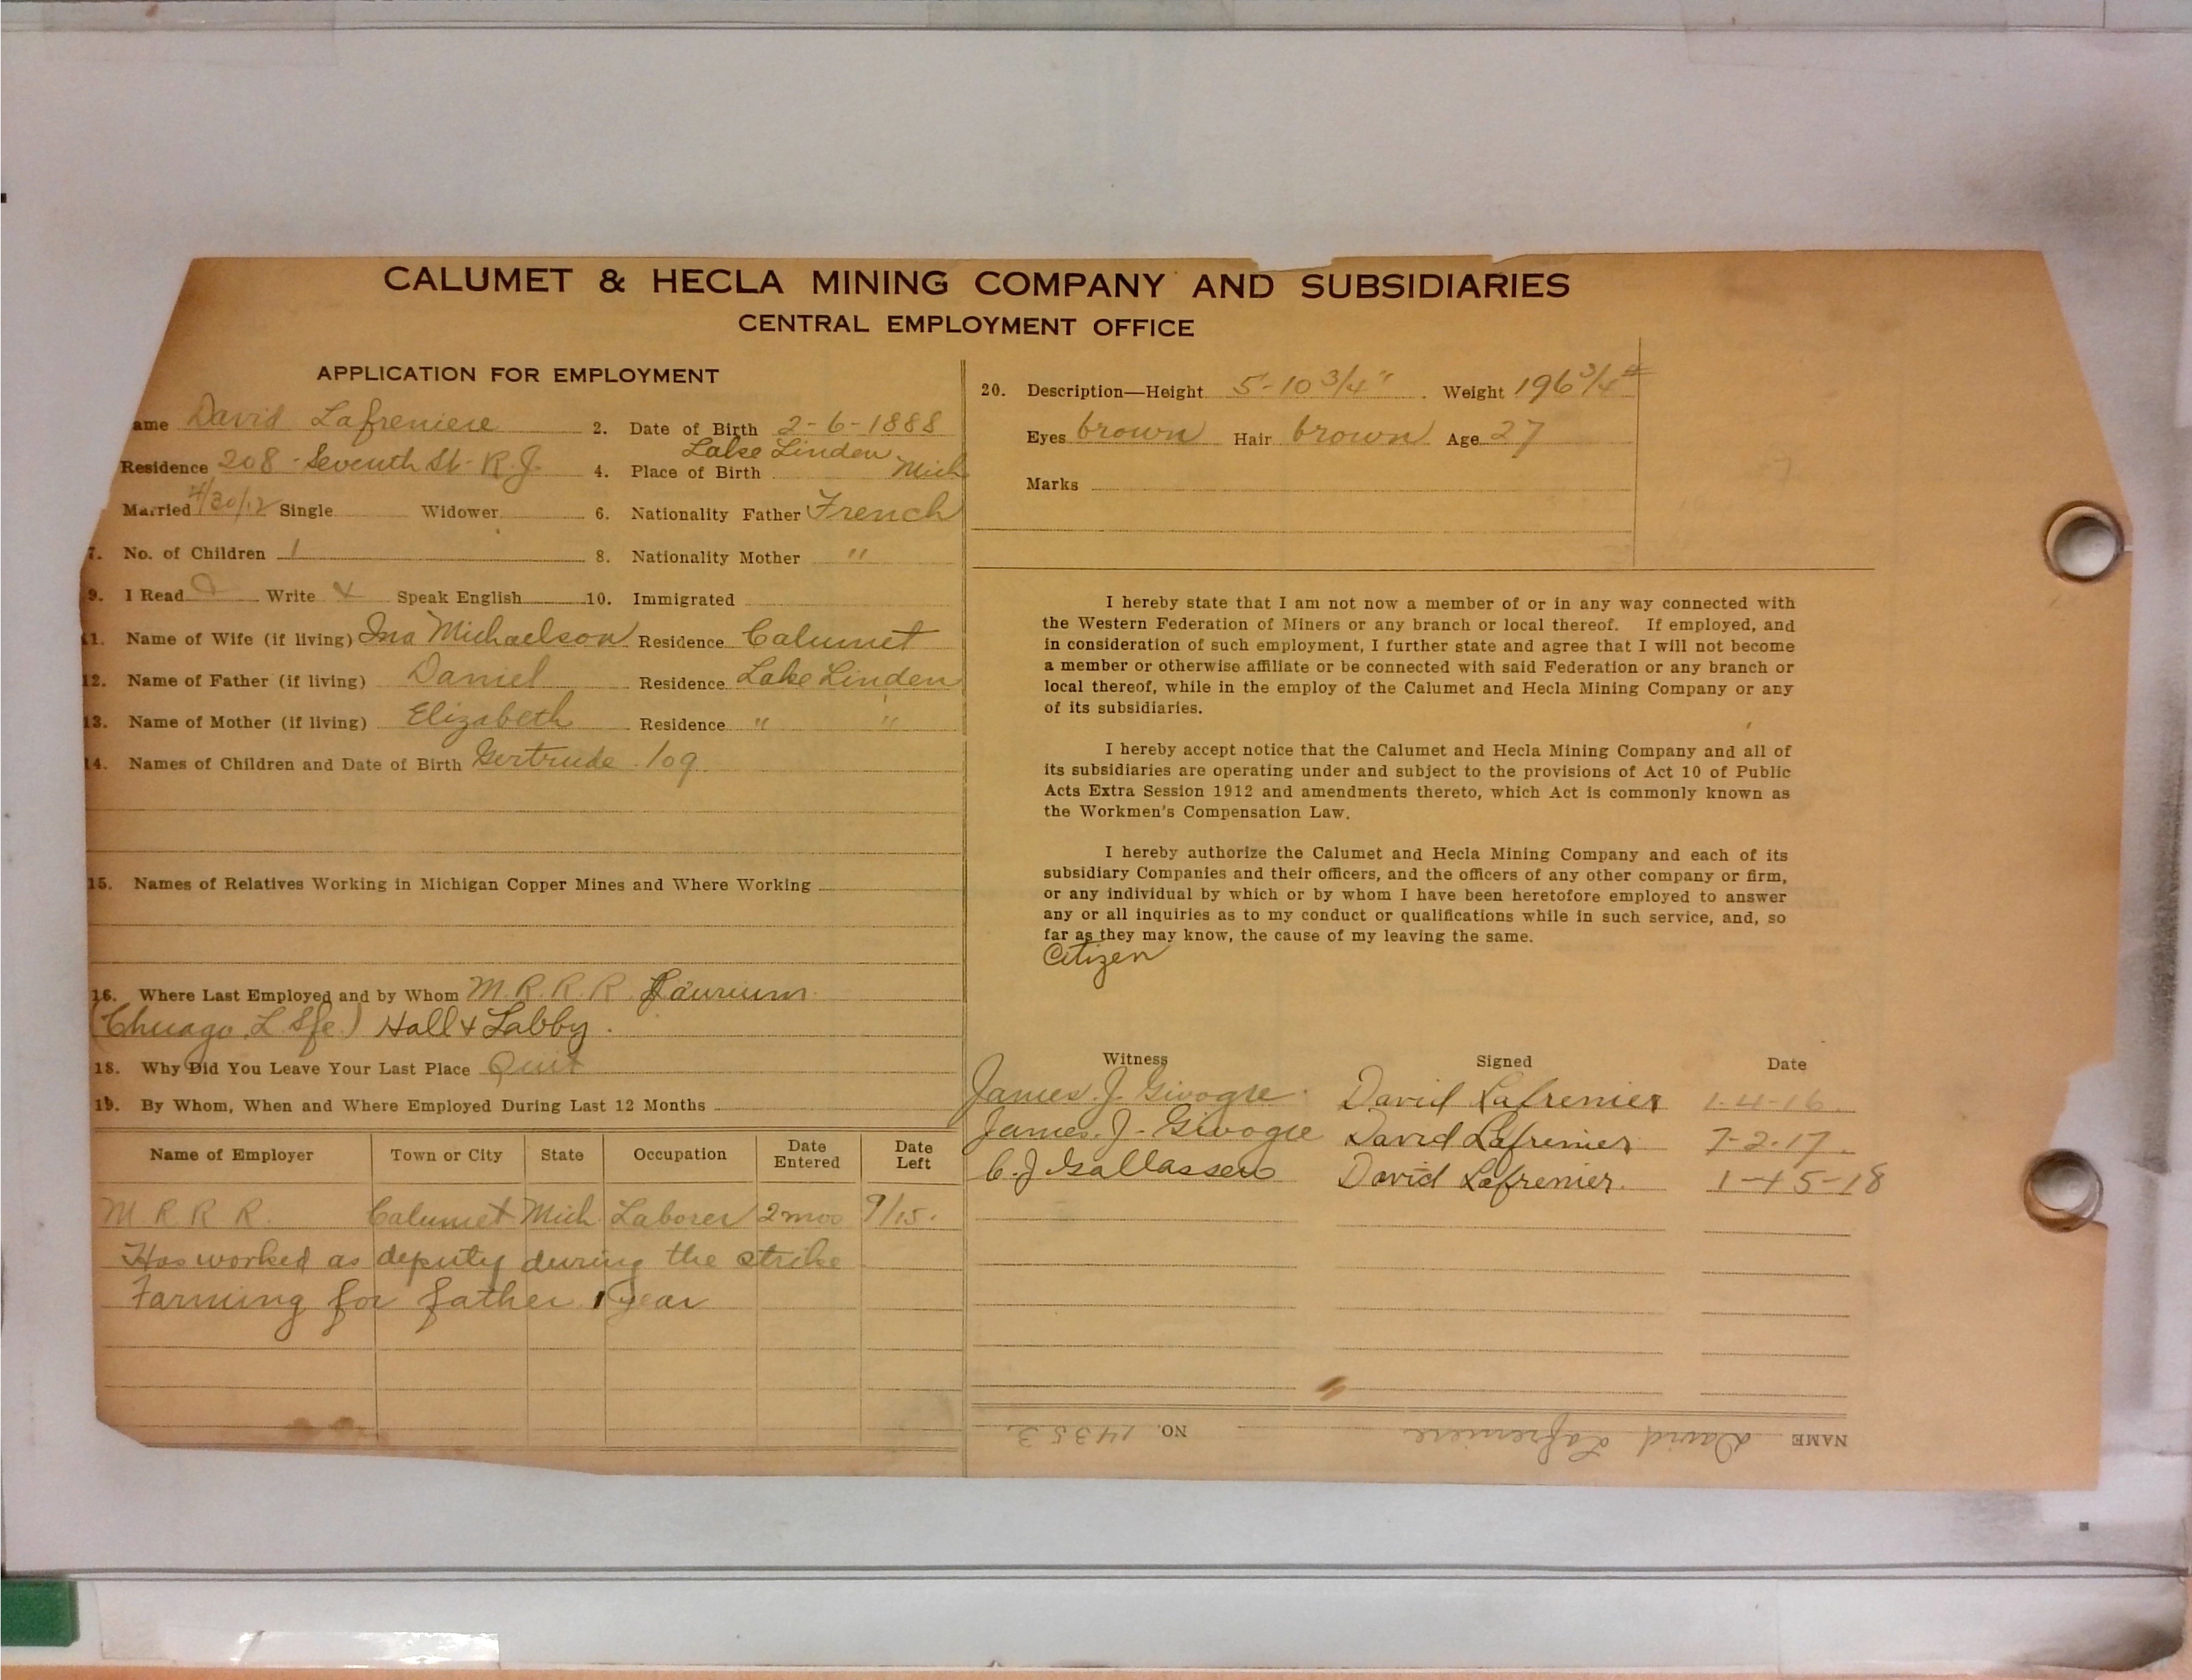 CALUMET & HECLA MINING COMPANY AND SUBSIDIARIES
CENTRAL EMPLOYMENT OFFICE
APPLICATION FOR EMPLOYMENT
ame David Lafreniere 2. Date of Birth 2-6-1888
Residence 208 - Seventh St. R.J. 4. Place of Birth Lake Linden Mich
Married 4/30/12 Single Widower 6. Nationality Father French
7. No. of Children 1 8. Nationality Mother "
9. I Read Write Speak English 10. Immigrated
11. Name of Wife (if living) Ina Michaelson Residence Calumet
12. Name of Father (if living) Daniel Residence Lake Linden
13. Name of Mother (if living) Elizabeth Residence " "
14. Names of Children and Date of Birth Gertrude
15. Names of Relatives Working in Michigan Copper Mines and Where Working
16. Where Last Employed and by Whom M.R.R.R. Laurium
(Chicago Hall & Labby.
18. Why Did You Leave Your Last Place Quit
19. By Whom, When and Where Employed During Last 12 Months
Name of Employer Town or City State Occupation Date Entered Date Left
M.R.R.R. Calumet Mich. Laborer 2 mos 9/15.
Has worked as deputy during the strike
Farming for father 1 year
20. Description—Height 5-10 3/4" Weight 196 3/4 #
Eyes brown Hair brown Age 27
Marks
I hereby state that I am not now a member of or in any way connected with
the Western Federation of Miners or any branch or local thereof. If employed, and
in consideration of such employment, I further state and agree that I will not become
a member or otherwise affiliate or be connected with said Federation or any branch or
local thereof, while in the employ of the Calumet and Hecla Mining Company or any
of its subsidiaries.
I hereby accept notice that the Calumet and Hecla Mining Company and all of
its subsidiaries are operating under and subject to the provisions of Act 10 of Public
Acts Extra Session 1912 and amendments thereto, which Act is commonly known as
the Workmen's Compensation Law.
I hereby authorize the Calumet and Hecla Mining Company and each of its
subsidiary Companies and their officers, and the officers of any other company or firm,
or any individual by which or by whom I have been heretofore employed to answer
any or all inquiries as to my conduct or qualifications while in such service, and, so
far as they may know, the cause of my leaving the same.
Citizen
Witness Signed Date
James. J. Givogre David Lafrenier 1-4-16.
James. J. Givogre David Lafrenier 7-2-17.
C. J. Gallassero David Lafrenier. 1-15-18
NAME David Lafreniere NO. 14353